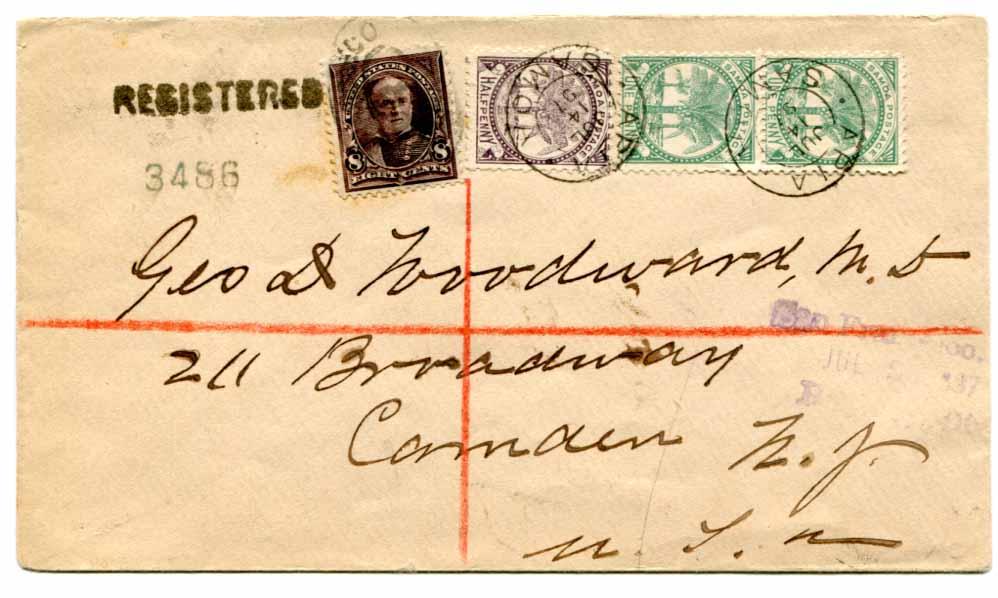 REGISTERED
3486
UNITED STATES POSTAGE
8 8
EIGHT CENTS
HALFPENNY
SAMOA POSTAGE
SAMOA POSTAGE
SAMOA POSTAGE
APIA
SAMOA
Geo D Woodward, M. D
211 Broadway
Camden N. J.
U. S. A
San
JUL